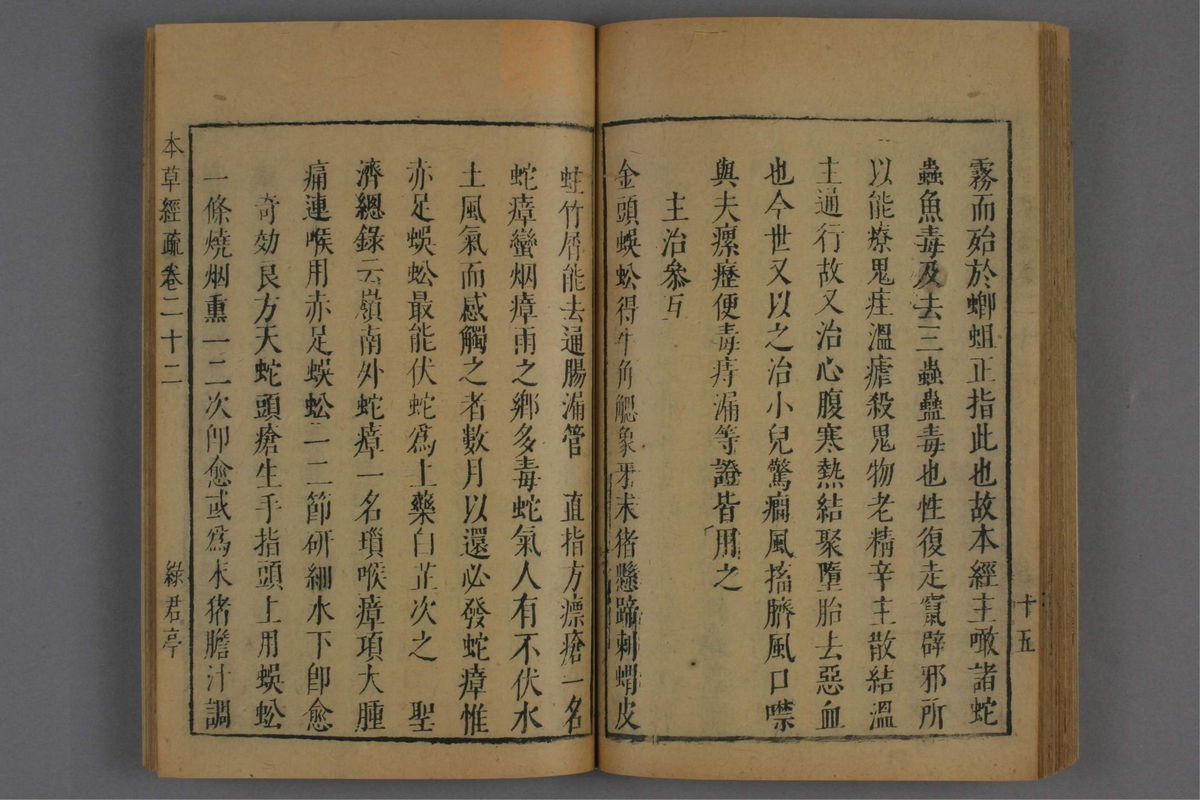 霧而殆於螂蛆正指此也故本經主噉諸蛇
蟲魚毒及去三蟲蠱毒也性復走竄辟邪所
以能療鬼疰溫瘧殺鬼物老精辛主散結溫
主通行故又治心腹寒熱結聚墮胎去惡血
也今世又以之治小兒驚癇風搐臍風口噤
與夫瘰癧便毒痔漏等證皆用之
主治參互
金頭蜈蚣得牛角䚡象牙末猪懸蹄刺蝟皮
十五
蛀竹屑能去通腸漏管 直指方瘭瘡一名
蛇瘴蠻烟瘴雨之鄉多毒蛇氣人有不伏水
土風氣而感觸之者數月以還必發蛇瘴惟
赤足蜈蚣最能伏蛇爲上藥白芷次之 聖
濟總錄云嶺南外蛇瘴一名瑣喉瘴項大腫
痛連喉用赤足蜈蚣一二節研細水下卽愈
奇効良方天蛇頭瘡生手指頭上用蜈蚣
一條燒烟熏一二次卽愈或爲末猪膽汁調
本草經疏卷二十二
綠君亭